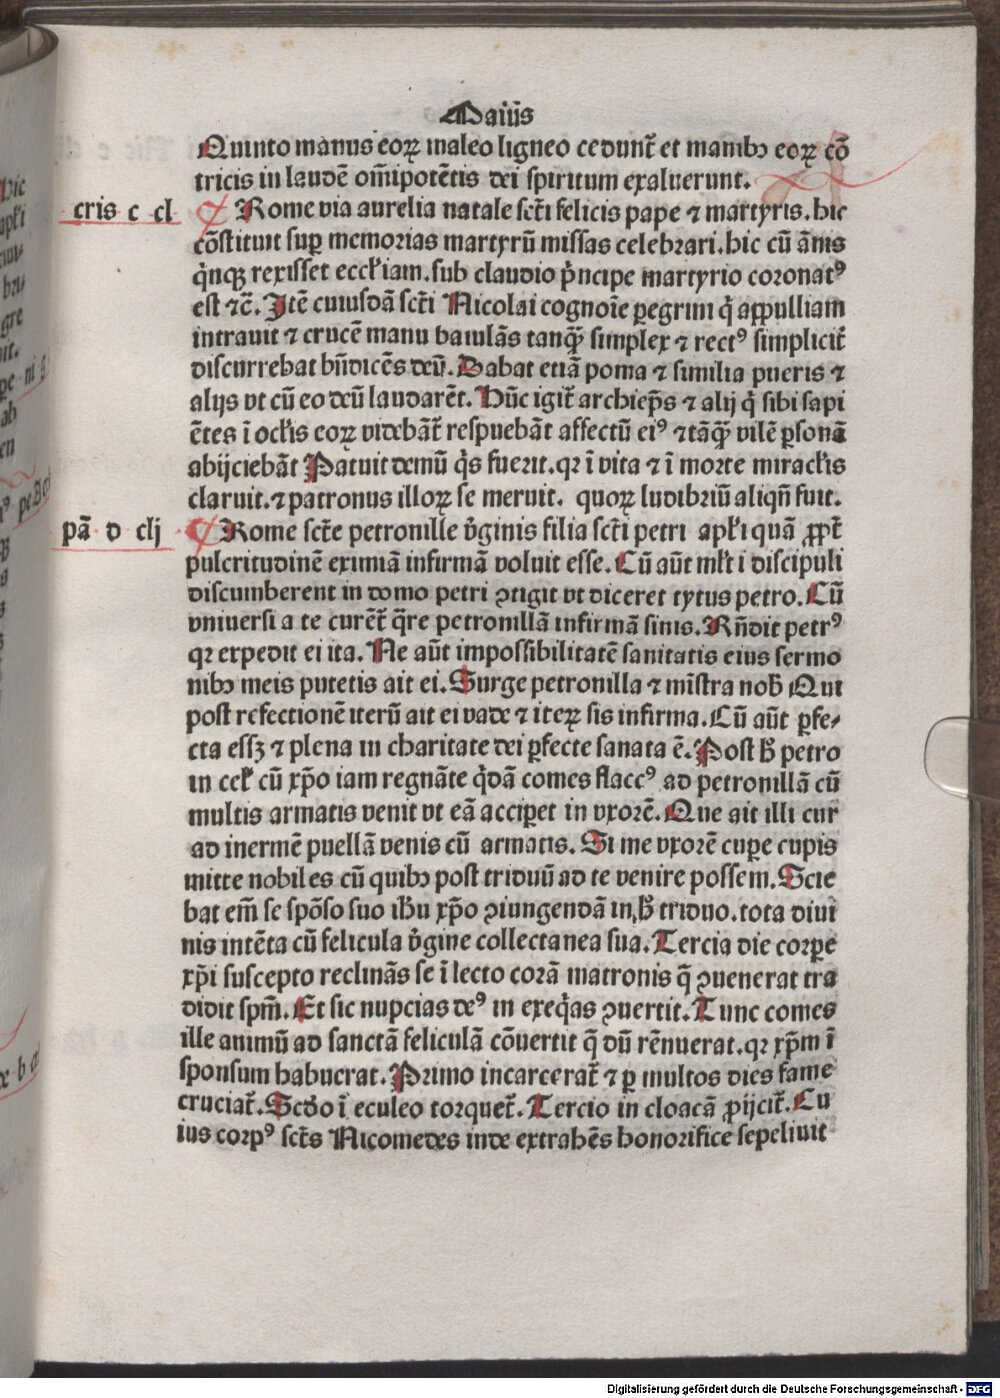 Maiꝰ
Quinto manus eoꝝ maleo ligneo cedunt᷑ et manibꝰ eoꝝ cõ
tricis in laudē om̄ipotētis dei spiritum exaluerunt.
cris c cl ¶ Rome via aurelia natale sct̄i felicis pape ⁊ martyris. hic
cōstituit sup memorias martyrū missas celebrari. hic cū ānis
q̄nqꝫ rexisset eccl̄iam. sub claudio p̄ncipe martyrio coronatꝰ
est ⁊c̄. Itē cuiusdā sct̄i Nicolai cognoīe ꝑegrini q̄ appulliam
intrauit ⁊ crucē manu baiulās tanqꝫ̄ simplex ⁊ rectꝰ simplicit᷑
discurrebat bn̄dicēs deū. Dabat etiā poma ⁊ similia pueris ⁊
alijs vt cū eo deū laudarēt. Hūc igit᷑ archiep̄s ⁊ alij q̄ sibi sapi
ētes ī ocl̄is eoꝝ videbāt᷑ respuebāt affectū eiꝰ ⁊ tāqꝫ̄ vilē ꝑsonā
abijciebāt Patuit demū q̄s fuerit. qꝛ ī vita ⁊ ī morte miracl̄is
claruit. ⁊ patronus illoꝝ se meruit. quoꝝ ludibriū aliqn̄ fuit.
pā d clj ¶ Rome sct̄e petronille v̄ginis filia sct̄i petri apl̄i quā ꝓpt᷑
pulcritudinē eximiā infirmā voluit esse. Cū aūt ml̄ti discipuli
discumberent in domo petri ꝯtigit vt diceret tytus petro. Cū
vniuersi a te curēt᷑ q̄re petronillā infirmā sinis. Rn̄dit petrꝰ
qꝛ expedit ei ita. Ne aūt impossibilitatē sanitatis eius sermo
nibꝰ meis putetis ait ei. Surge petronilla ⁊ mīstra nob̄ Qui
post refectionē iterū ait ei vade ⁊ iteꝝ sis infirma. Cū aūt ꝑfe⸗
cta essꝫ ⁊ plena in charitate dei ꝑfecte sanata ē. Post h̄ petro
in cel̄ cū xp̄o iam regnāte q̄dā comes flaccꝰ ad petronillā cū
multis armatis venit vt eā acciꝑet in vxorē. Que ait illi cur
ad inermē puellā venis cū armatis. Si me vxorē cuꝑe cupis
mitte nobiles cū quibꝰ post triduū ad te venire possem. Scie
bat em̄ se spōso suo ih̄u xp̄o ꝯiungendā in h̄ triduo. tota diui
nis intēta cū felicula v̄gine collectanea sua. Tercia die corꝑe
xp̄i suscepto reclinās se ī lecto corā matronis q̄ ꝯuenerat tra
didit spm̄. Et sic nupcias deꝰ in exeq̄as ꝯuertit. Tunc comes
ille animū ad sanctā feliculā cōuertit q̄ dū rēnuerat. qꝛ xp̄m ī
sponsum habuerat. Primo incarcerat᷑ ⁊ ꝑ multos dies fame
cruciat᷑. Scd̄o ī eculeo torquet᷑. Tercio in cloacā ꝓijcit᷑. Cu
ius corpꝰ sct̄s Nicomedes inde extrahēs honorifice sepeliuit
Digitalisierung gefördert durch die Deutsche Forschungsgemeinschaft - DFG